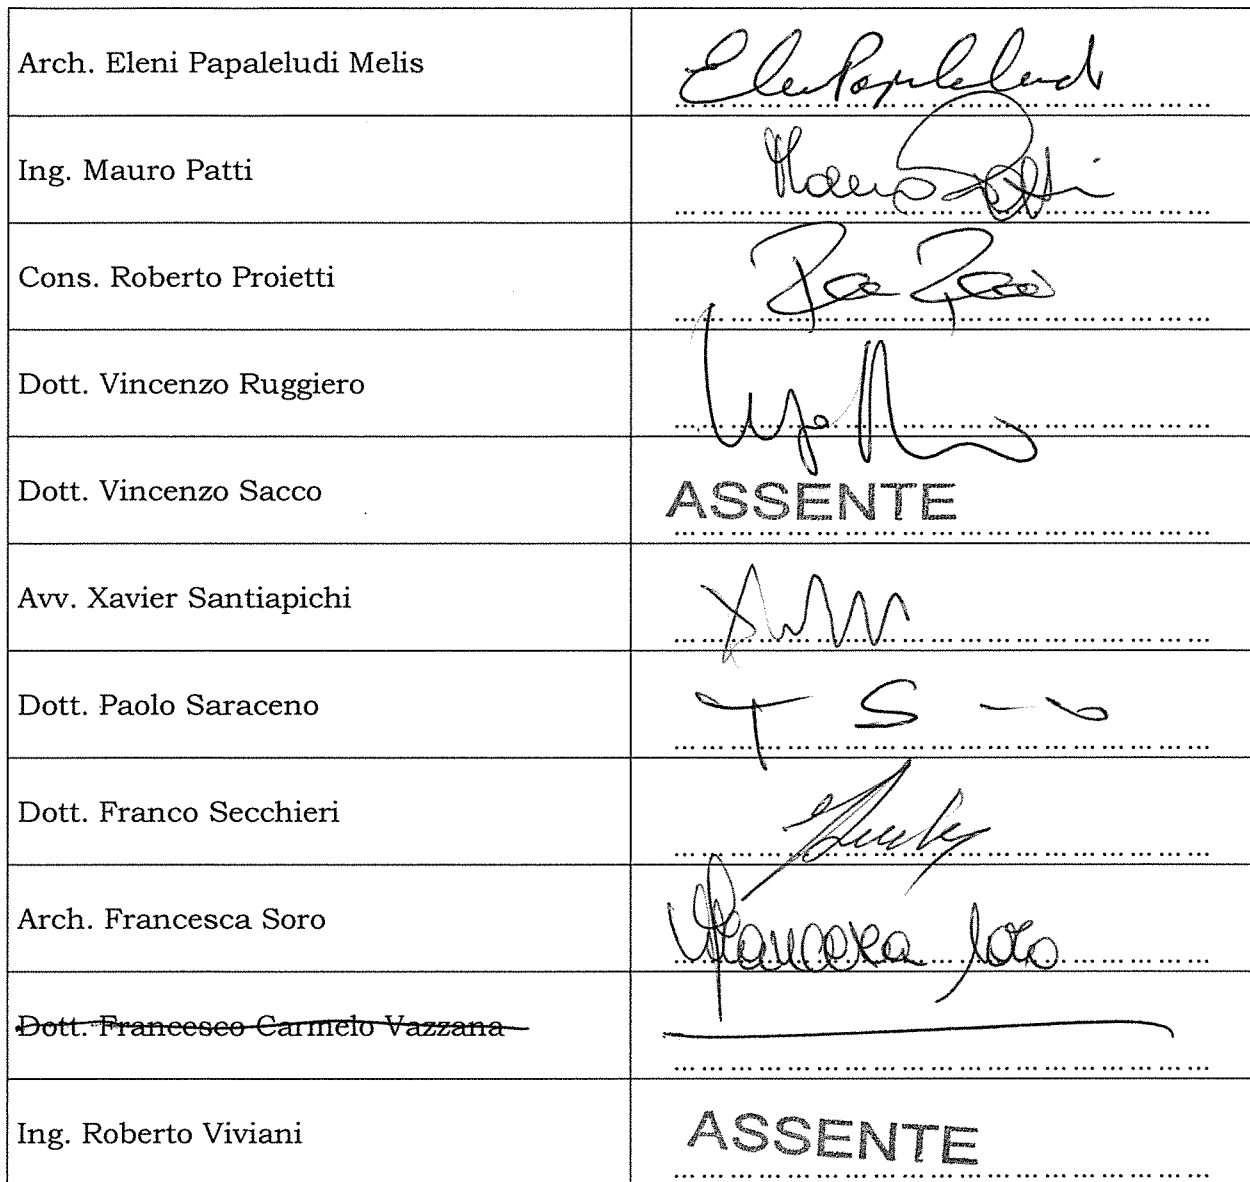 Arch. Eleni Papaleludi Melis
Ing. Mauro Patti
Mauro Patti
Cons. Roberto Proietti
Dott. Vincenzo Ruggiero
Dott. Vincenzo Sacco
ASSENTE
Avv. Xavier Santiapichi
Dott. Paolo Saraceno
Dott. Franco Secchieri
Arch. Francesca Soro
Francesca Soro
Dott. Francesco Carmelo Vazzana
Ing. Roberto Viviani
ASSENTE